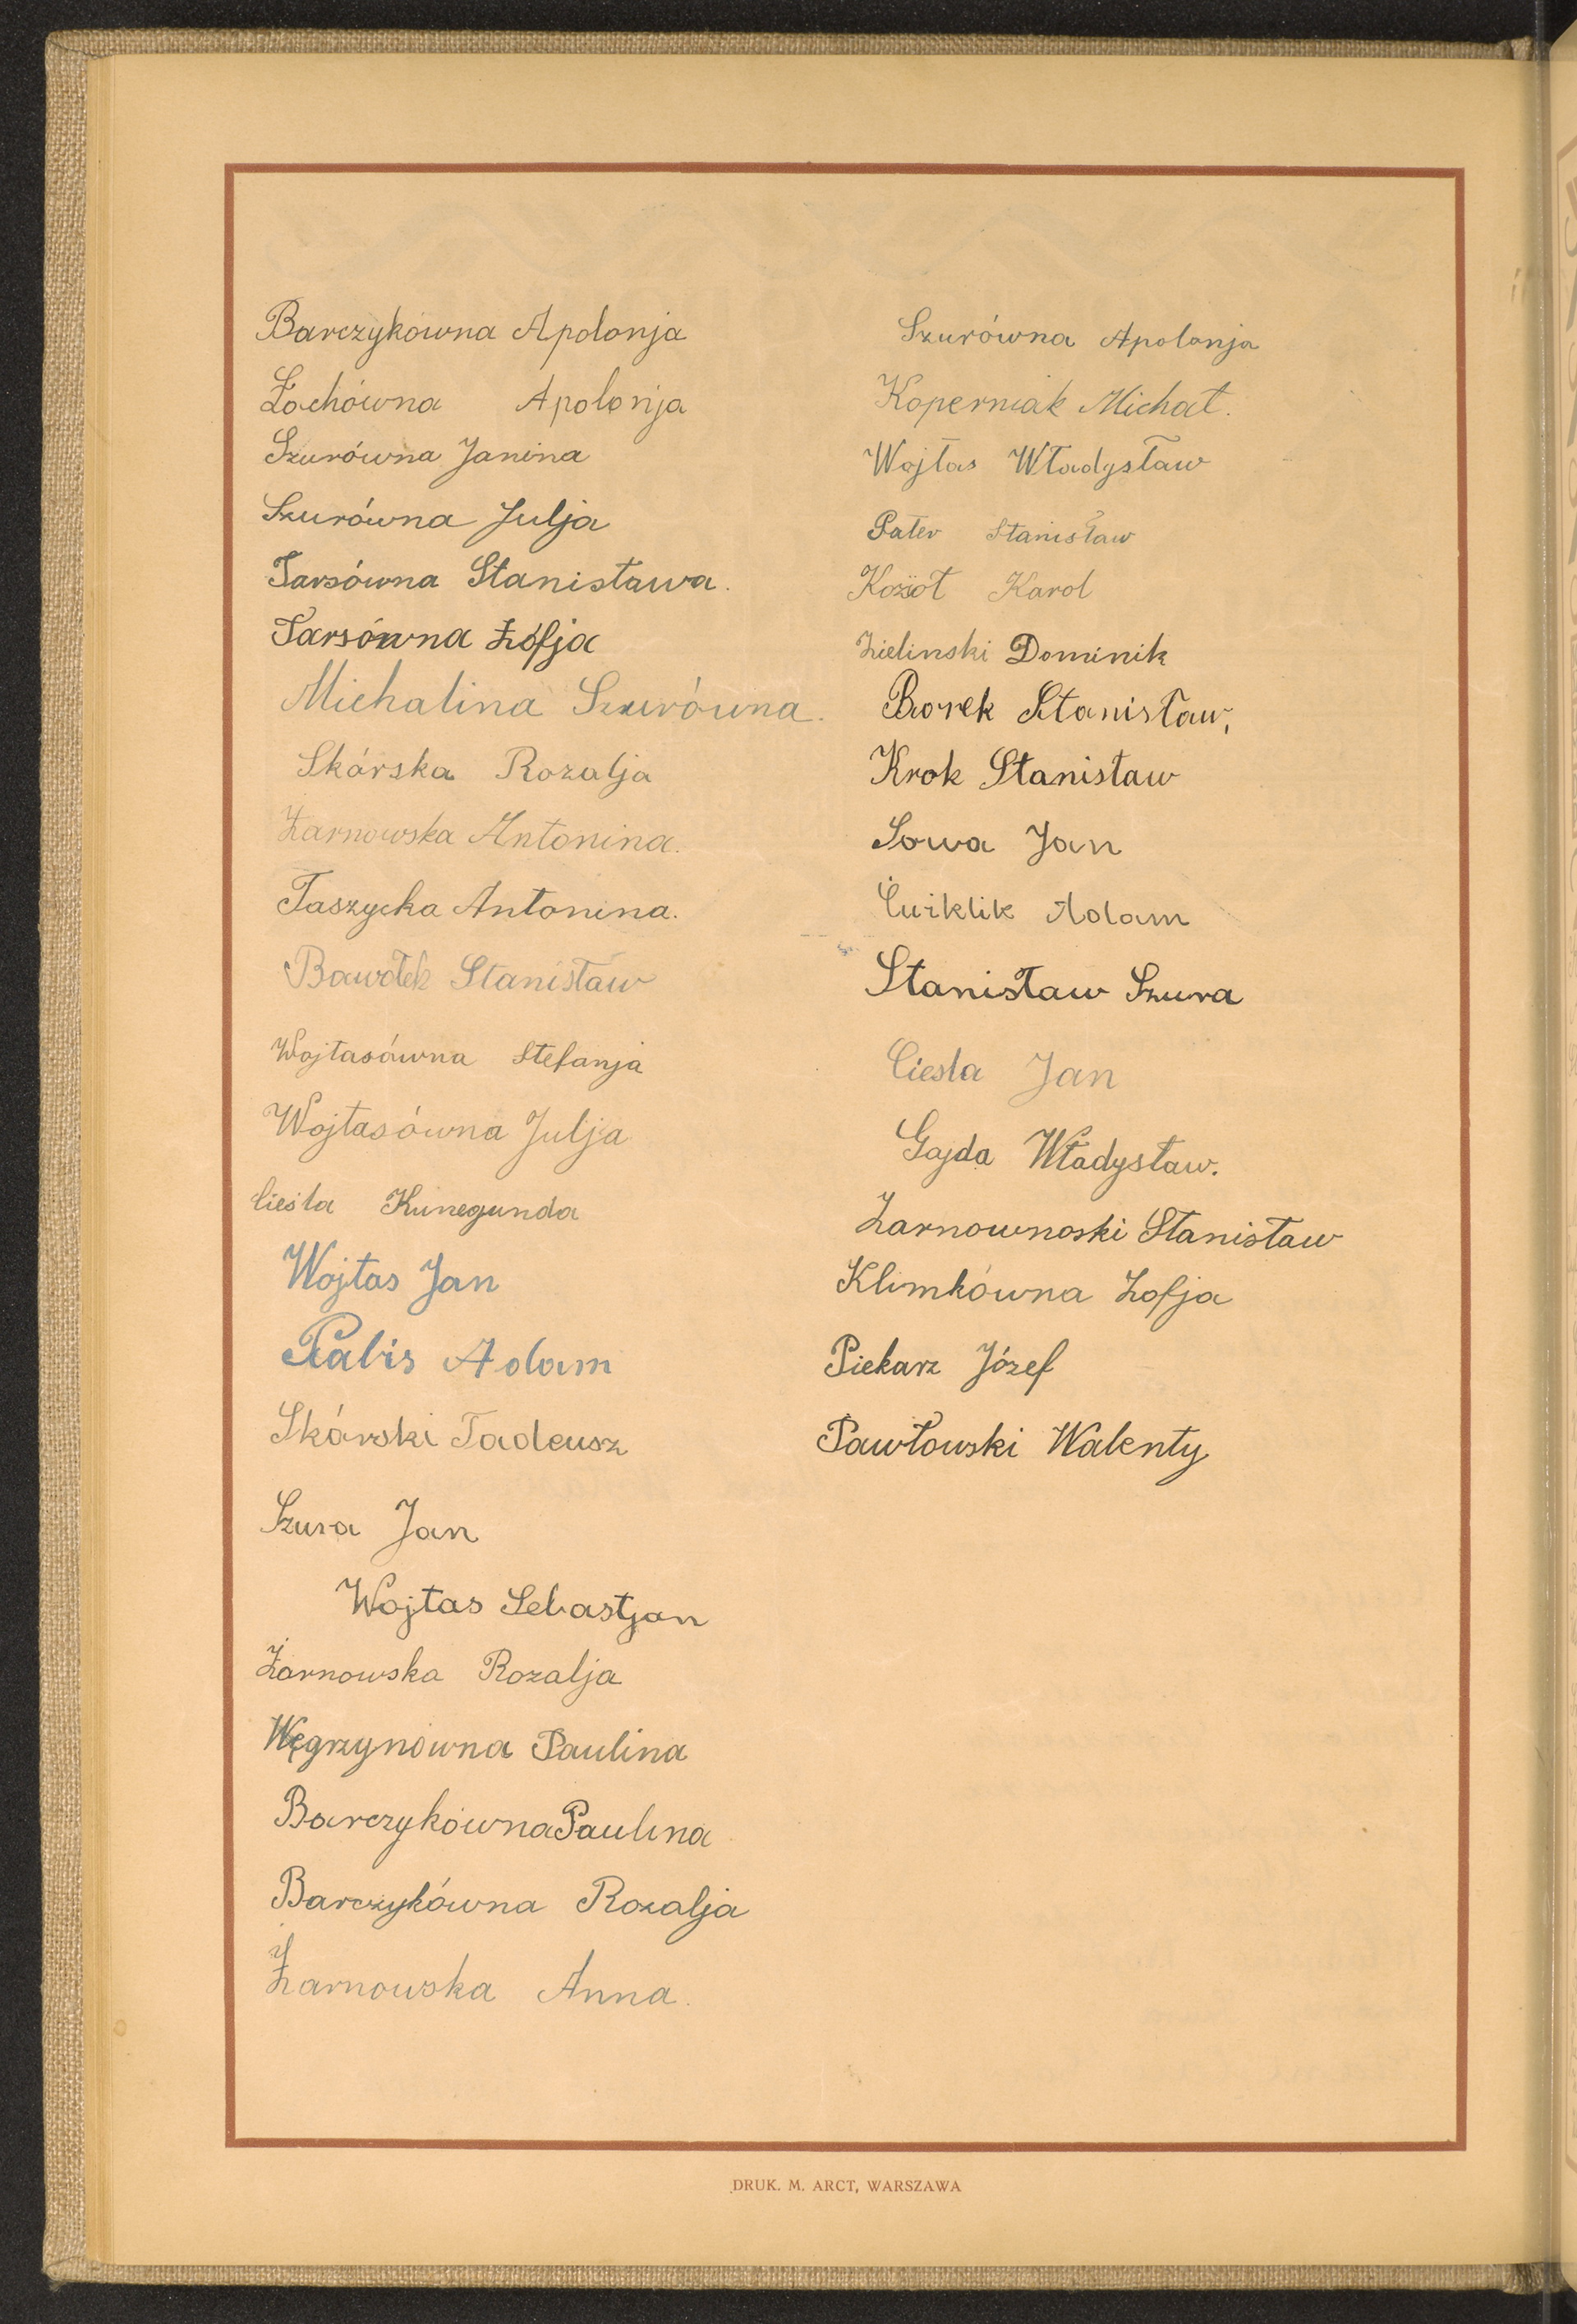 Barczykówna Apolonja
Łochówna Apolonja
Szurówna Janina
Szurówna Julja
Tarsówna Stanisława.
Tarsówna Zofja
Michalina Szurówna.
Skórska Rozalja
Żarnowska Antonina.
Taszycka Antonina.
Bawołek Stanisław
Wojtasówna Stefanja
Wojtasówna Julja
Cieśla Kunegunda
Wojtas Jan
Rabis Adam
Skórski Tadeusz
Szura Jan
Wojtas Sebastjan
Żarnowska Rozalja
Węgrzynówna Paulina
Barczykówna Paulina
Barczykówna Rozalja
Żarnowska Anna.
Szurówna Apolonja
Koperniak Michał.
Wojtas Władysław
Pater Stanisław
Kozioł Karol
Zielinski Dominik
Borek Stanisław,
Krok Stanisław
Sowa Jan
Ćwiklik Adam
Stanisław Szura
Ciesla Jan
Gajda Władysław.
Żarnownoski Stanisław
Klimkówna Zofja
Piekarz Józef
Pawłowski Walenty
DRUK. M. ARCT, WARSZAWA